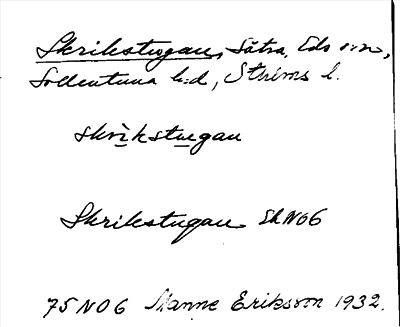 Skrikstugan, Sätra, Eds sn,
Sollentuna h:d, Sthlms l.
skrìkstugan
Skrikstugan Ek N06
75 N06 Manne Eriksson 1932.